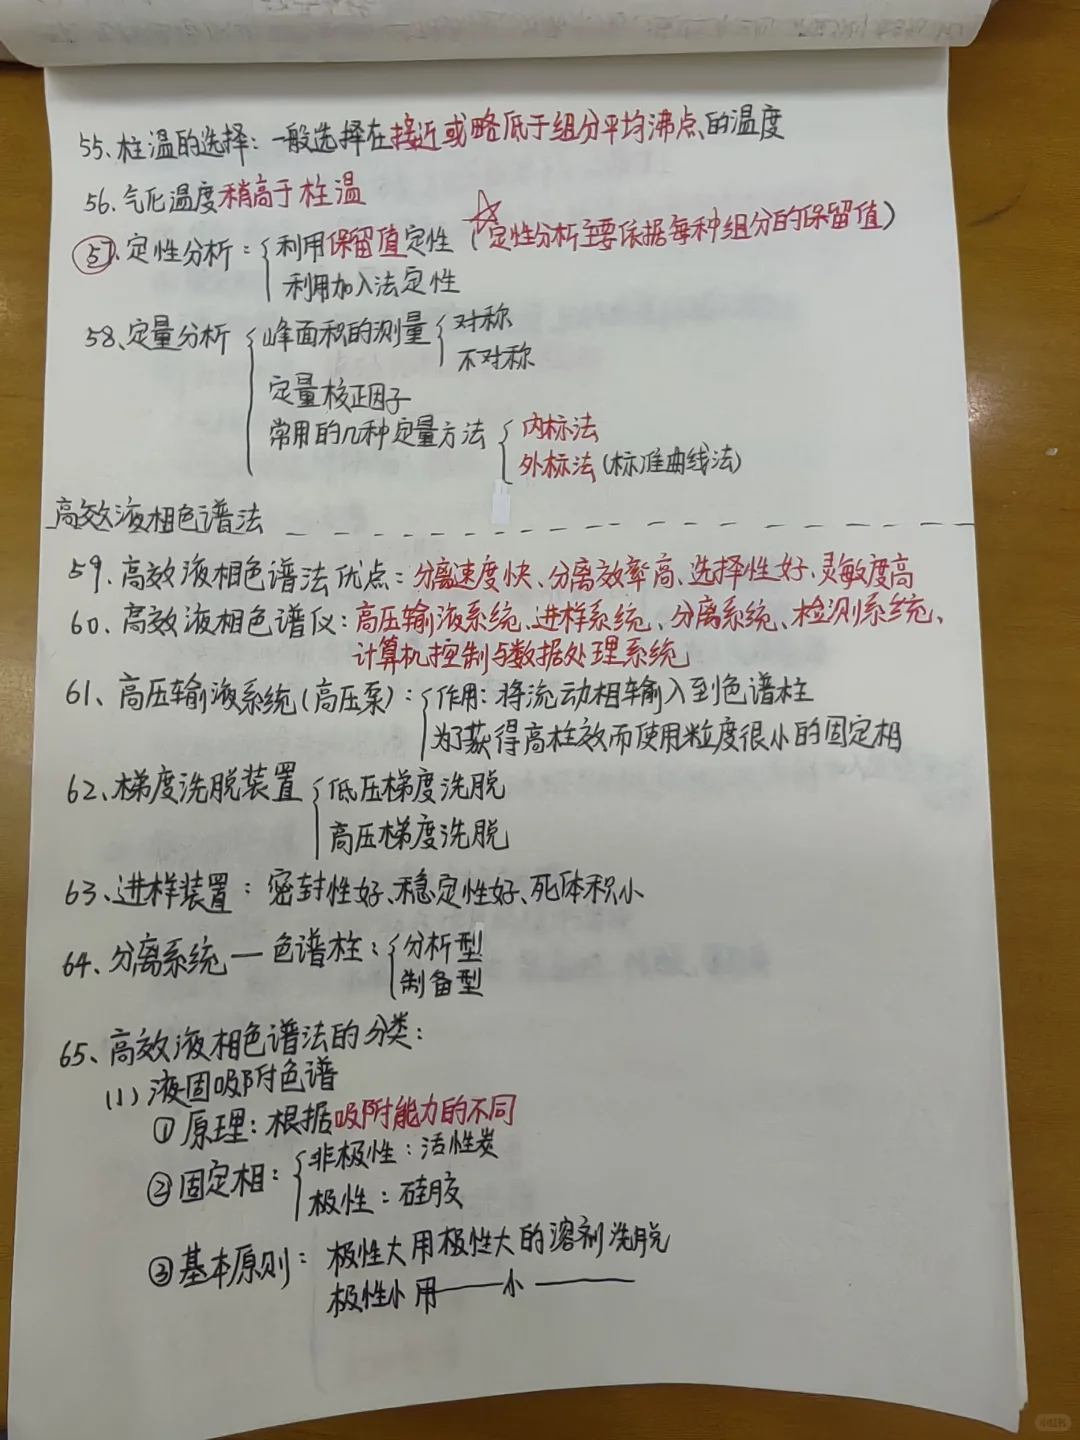 55、柱温的选择：一般选择在接近或略低于组分平均沸点的温度
56、气化温度稍高于柱温
57、定性分析：{利用保留值定性（☆定性分析主要依据每种组分的保留值）
利用加入法定性
58、定量分析{峰面积的测量{对称
不对称
定量校正因子
常用的几种定量方法{内标法
外标法（标准曲线法）
高效液相色谱法
59、高效液相色谱法优点：分离速度快、分离效率高、选择性好、灵敏度高
60、高效液相色谱仪：高压输液系统、进样系统、分离系统、检测系统、
计算机控制与数据处理系统
61、高压输液系统（高压泵）：{作用：将流动相输入到色谱柱
为了获得高柱效而使用粒度很小的固定相
62、梯度洗脱装置{低压梯度洗脱
高压梯度洗脱
63、进样装置：密封性好、稳定性好、死体积小
64、分离系统—色谱柱：{分析型
制备型
65、高效液相色谱法的分类：
(1)液固吸附色谱
①原理：根据吸附能力的不同
②固定相：{非极性：活性炭
极性：硅胶
③基本原则：极性大用极性大的溶剂洗脱
极性小用——小——
小红书